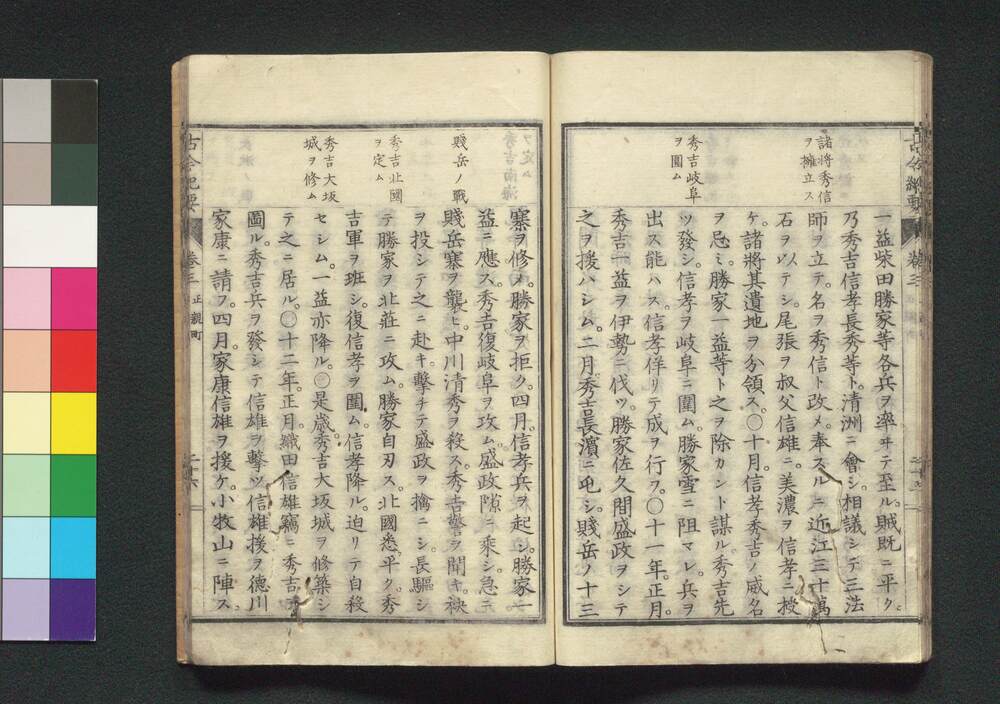 諸將秀信
ヲ擁立ス
秀吉岐阜
ヲ圍ム
一益柴田勝家等各兵ヲ率ヰテ至ル。賊既ニ平ク。
乃秀吉信孝長秀等ト。清洲ニ會シ。相議シテ三法
師ヲ立テ。名ヲ秀信ト改メ。奉スルニ近江三十萬
石ヲ以テシ。尾張ヲ叔父信雄ニ。美濃ヲ信孝ニ授
ケ。諸將其遺地ヲ分領ス。〇十月。信孝秀吉ノ威名
ヲ忌ミ。勝家一益等ト之ヲ除カント謀ル。秀吉先
ツ發シ。信孝ヲ岐阜ニ圍ム。勝家雪ニ阻マレ。兵ヲ
出ス能ハス。信孝佯リテ成ヲ行フ。〇十一年。正月。
秀吉一益ヲ伊勢ニ伐ツ。勝家佐久間盛政ヲシテ
之ヲ援ハシム。二月秀吉長濱ニ屯シ。賤岳ノ十三
賤岳ノ戰
秀吉北國
ヲ定ム
秀吉大坂
城ヲ修ム
寨ヲ修メ。勝家ヲ拒ク。四月。信孝兵ヲ起シ。勝家一
益ニ應ス。秀吉復岐阜ヲ攻ム。盛政隙ニ乘シ。急ニ
賤岳寨ヲ襲ヒ。中川清秀ヲ殺ス。秀吉警ヲ聞キ。袂
ヲ投シテ之ニ赴キ。擊チテ盛政ヲ擒ニシ。長驅シ
テ勝家ヲ北莊ニ攻ム。勝家自刃ス。北國悉平ク。秀
吉軍ヲ班シ。復信孝ヲ圍ム。信孝降ル。迫リテ自殺
セシム。一益亦降ル。〇是歲。秀吉大坂城ヲ修築シ
テ之ニ居ル。〇十二年。正月。織田信雄竊ニ秀吉ヲ
圖ル。秀吉兵ヲ發シテ信雄ヲ擊ツ。信雄援ヲ德川
家康ニ請フ。四月。家康信雄ヲ援ケ。小牧山ニ陣ス。
古今紀要
卷三
正親町
二十六